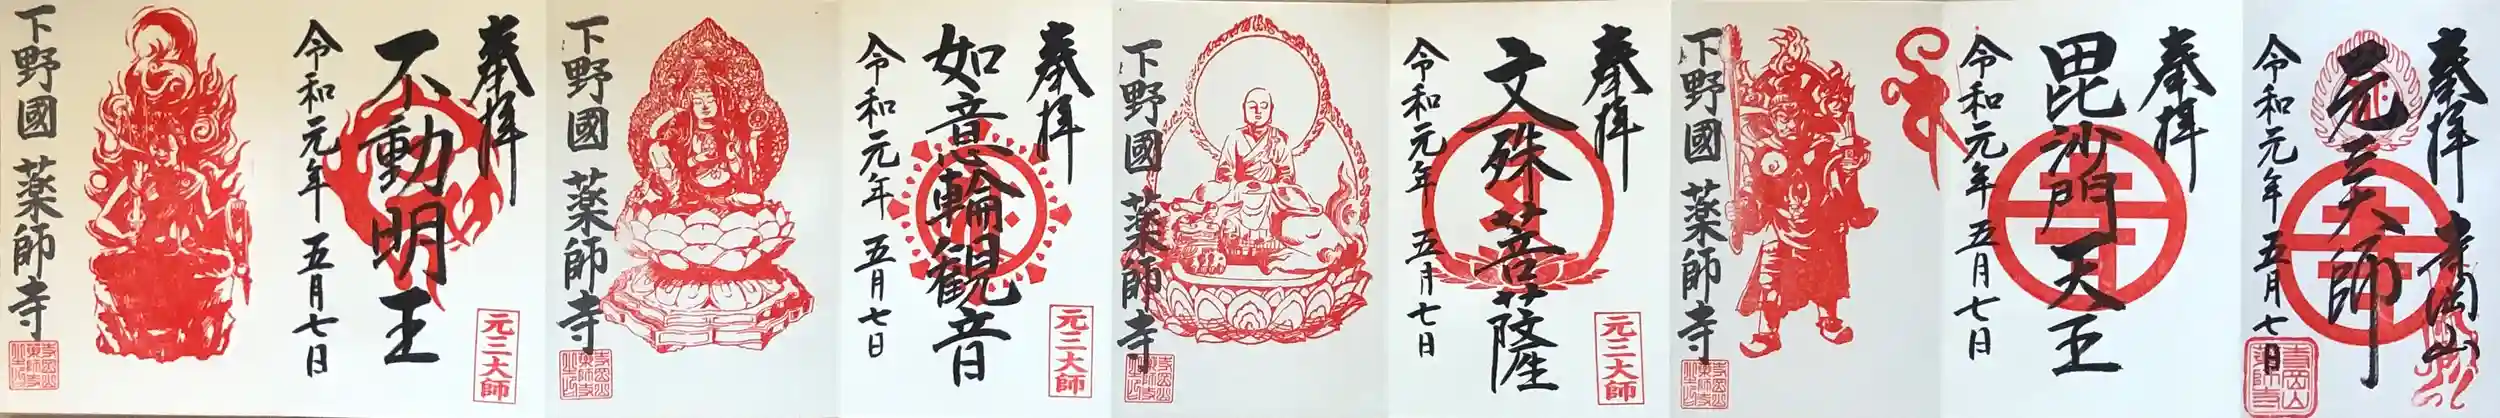 奉拝
不動明王
令和元年 五月七日
元三大師
下野國 薬師寺
奉拝
如意輪観音
令和元年 五月七日
元三大師
下野國 薬師寺
奉拝
文殊菩薩
令和元年 五月七日
元三大師
下野國 薬師寺
奉拝
毘沙門天王
令和元年 五月七日
下野國 薬師寺
奉拝 寺岡山
元三大師
令和元年 五月七日
寺岡山
薬師寺